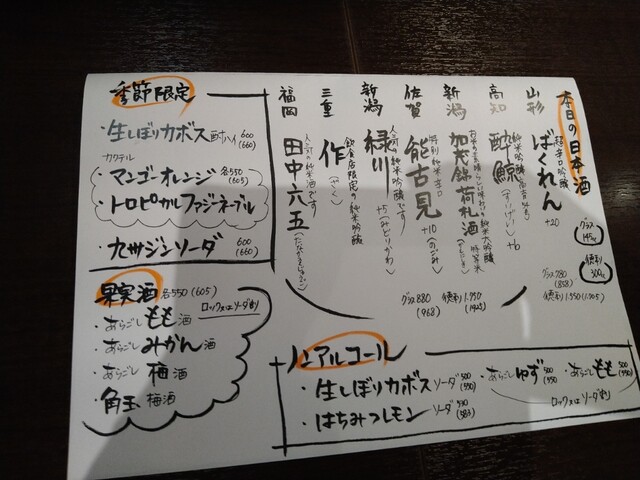 本日の日本酒
グラス 145cc
徳利 300cc
山形
ばくれん +20
超辛口吟醸
グラス780 (858)
徳利1.550 (1.705)
高知
酔鯨 (すいげい) +6
純米吟醸
新潟
加茂錦 荷札酒
佐賀
能古見 +10 (のごみ)
特別純米辛口
新潟
緑川 +5 (みどりかわ)
人気の純米吟醸です
グラス880 (968)
徳利1.750 (1925)
三重
作 (ざく)
飲食店限定の純米吟醸
福岡
田中六五 (たなかろくじゅうご)
人気の純米酒です
季節限定
・生しぼりカボス酎ハイ 600 (660)
カクテル
・マンゴーオレンジ 各550 (605)
・トロピカルファジーネーブル
・九州ジンソーダ 600 (660)
果実酒 各550 (605)
ロック又はソーダ割
・あらごしもも酒
・あらごしみかん酒
・あらごし梅酒
・角玉梅酒
ノンアルコール
・生しぼりカボスソーダ 500 (550)
・はちみつレモンソーダ 530 (583)
・あらごしゆず 500 550
・あらごしもも 500 (550)
ロック又はソーダ割